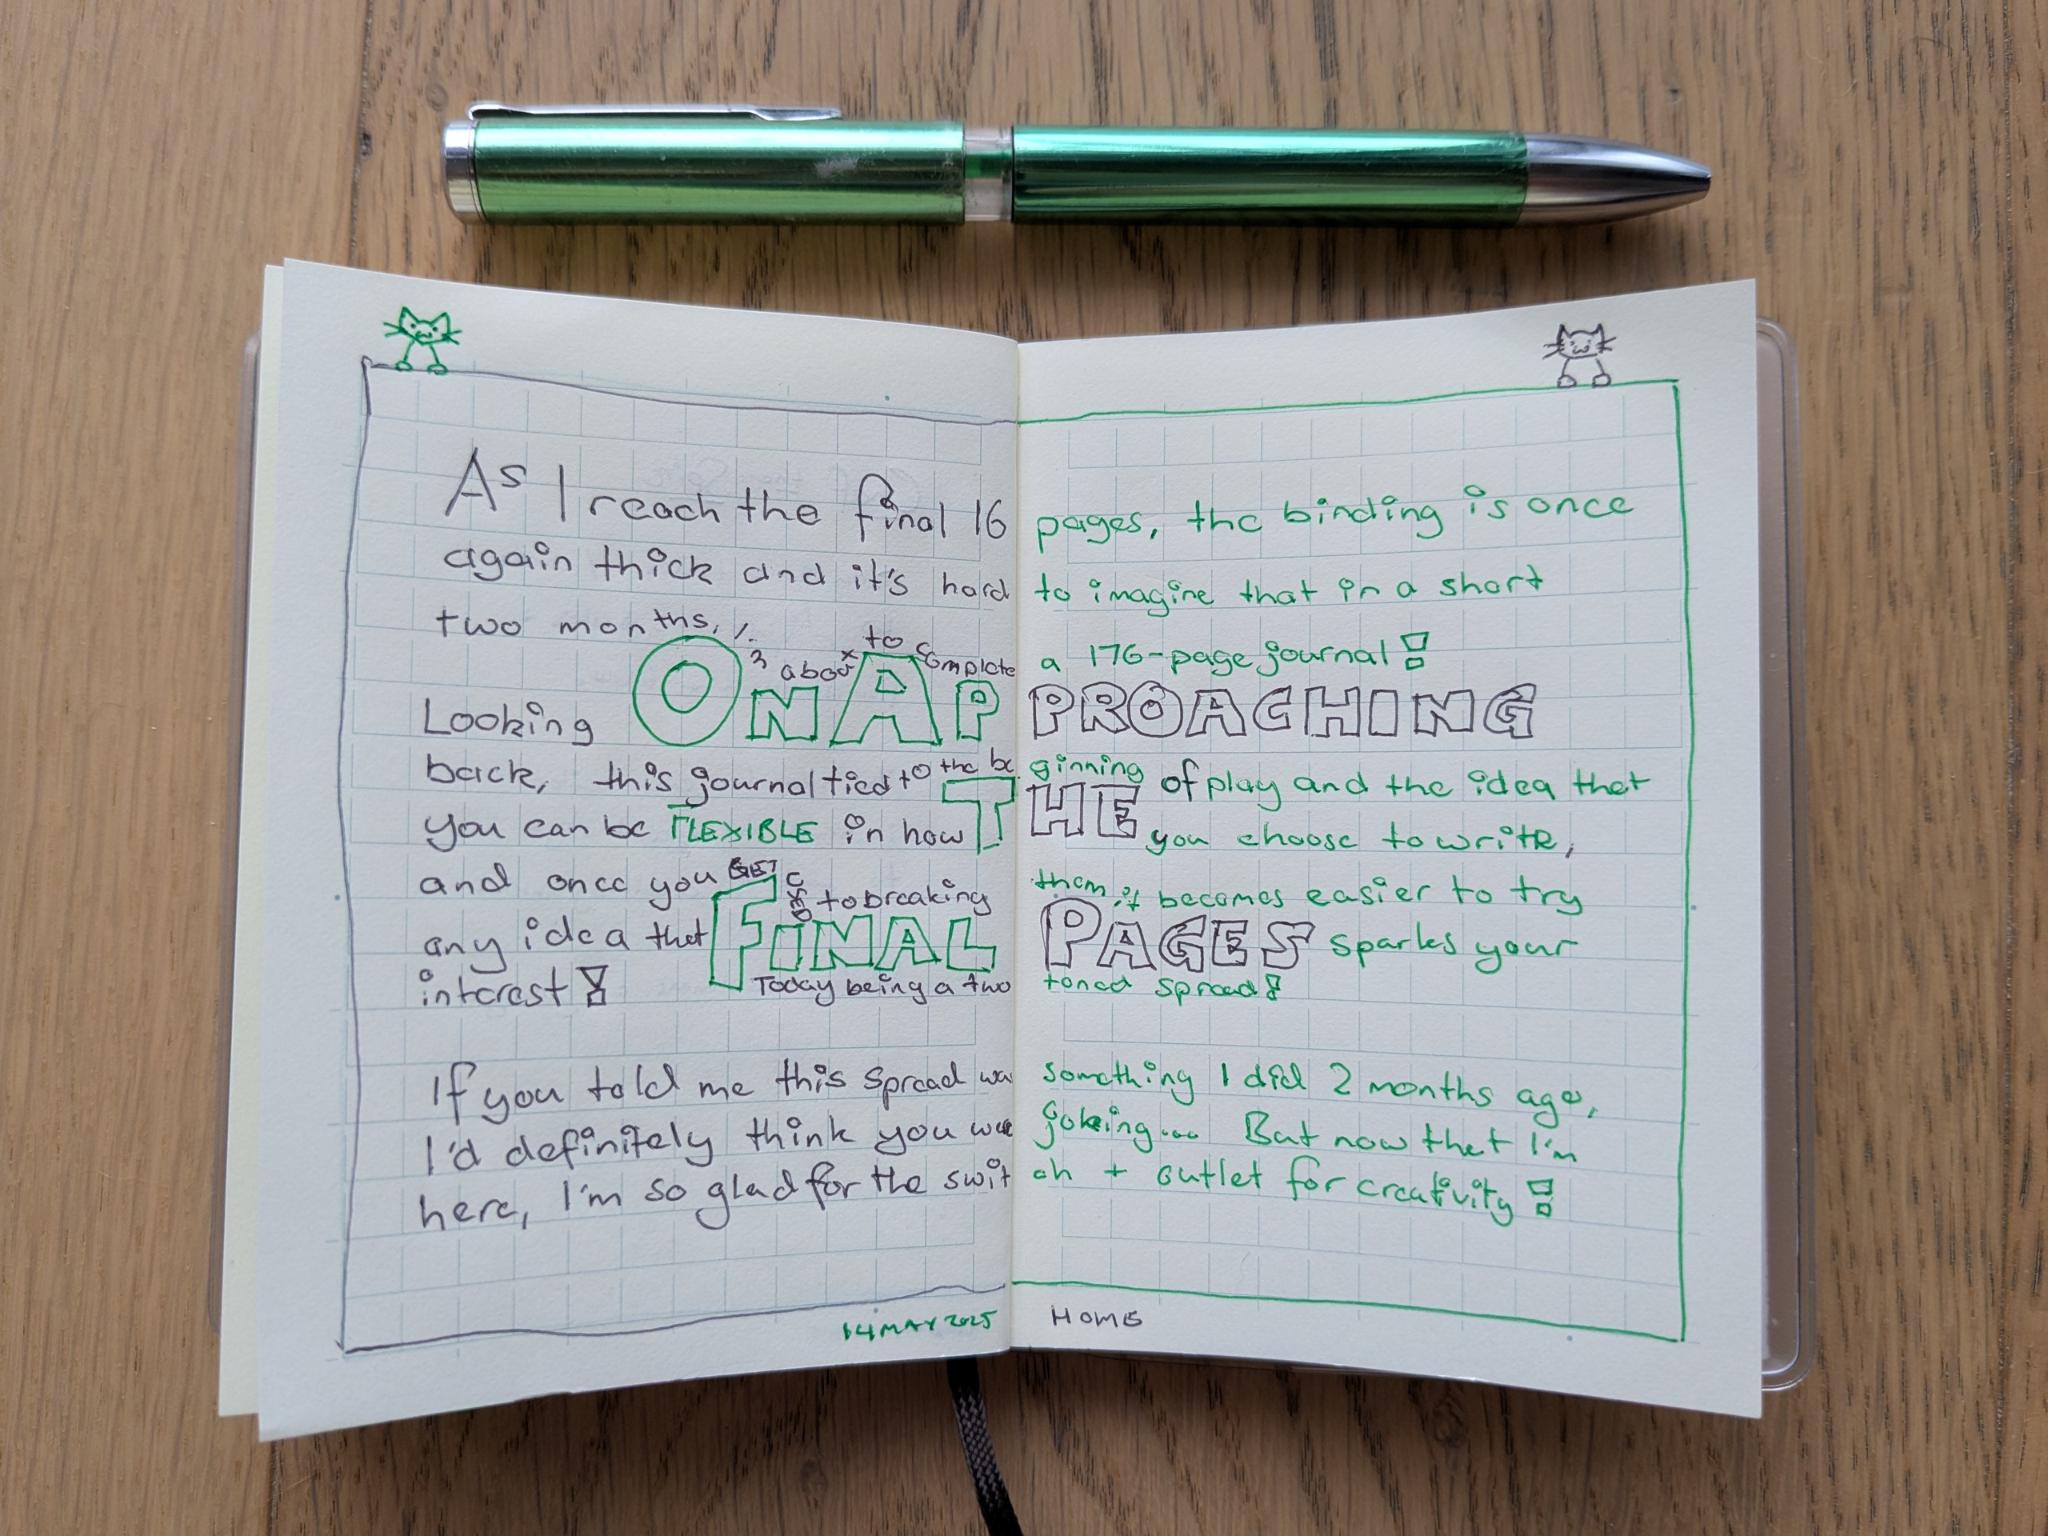 As I reach the final 16 pages, the binding is once
again thick and it's hard to imagine that in a short
two months, I'm about to complete a 176-page journal!
ON APPROACHING
Looking
back, this journal tied to the beginning of play and the idea that
THE
you can be FLEXIBLE in how you choose to write,
and once you GET used to breaking them it becomes easier to try
FINAL PAGES
any idea that sparks your
interest!
Today being a two toned spread!
If you told me this spread was something I did 2 months ago,
I'd definitely think you were joking... But now that I'm
here, I'm so glad for the switch + outlet for creativity!
14 MAY 2025 HOME